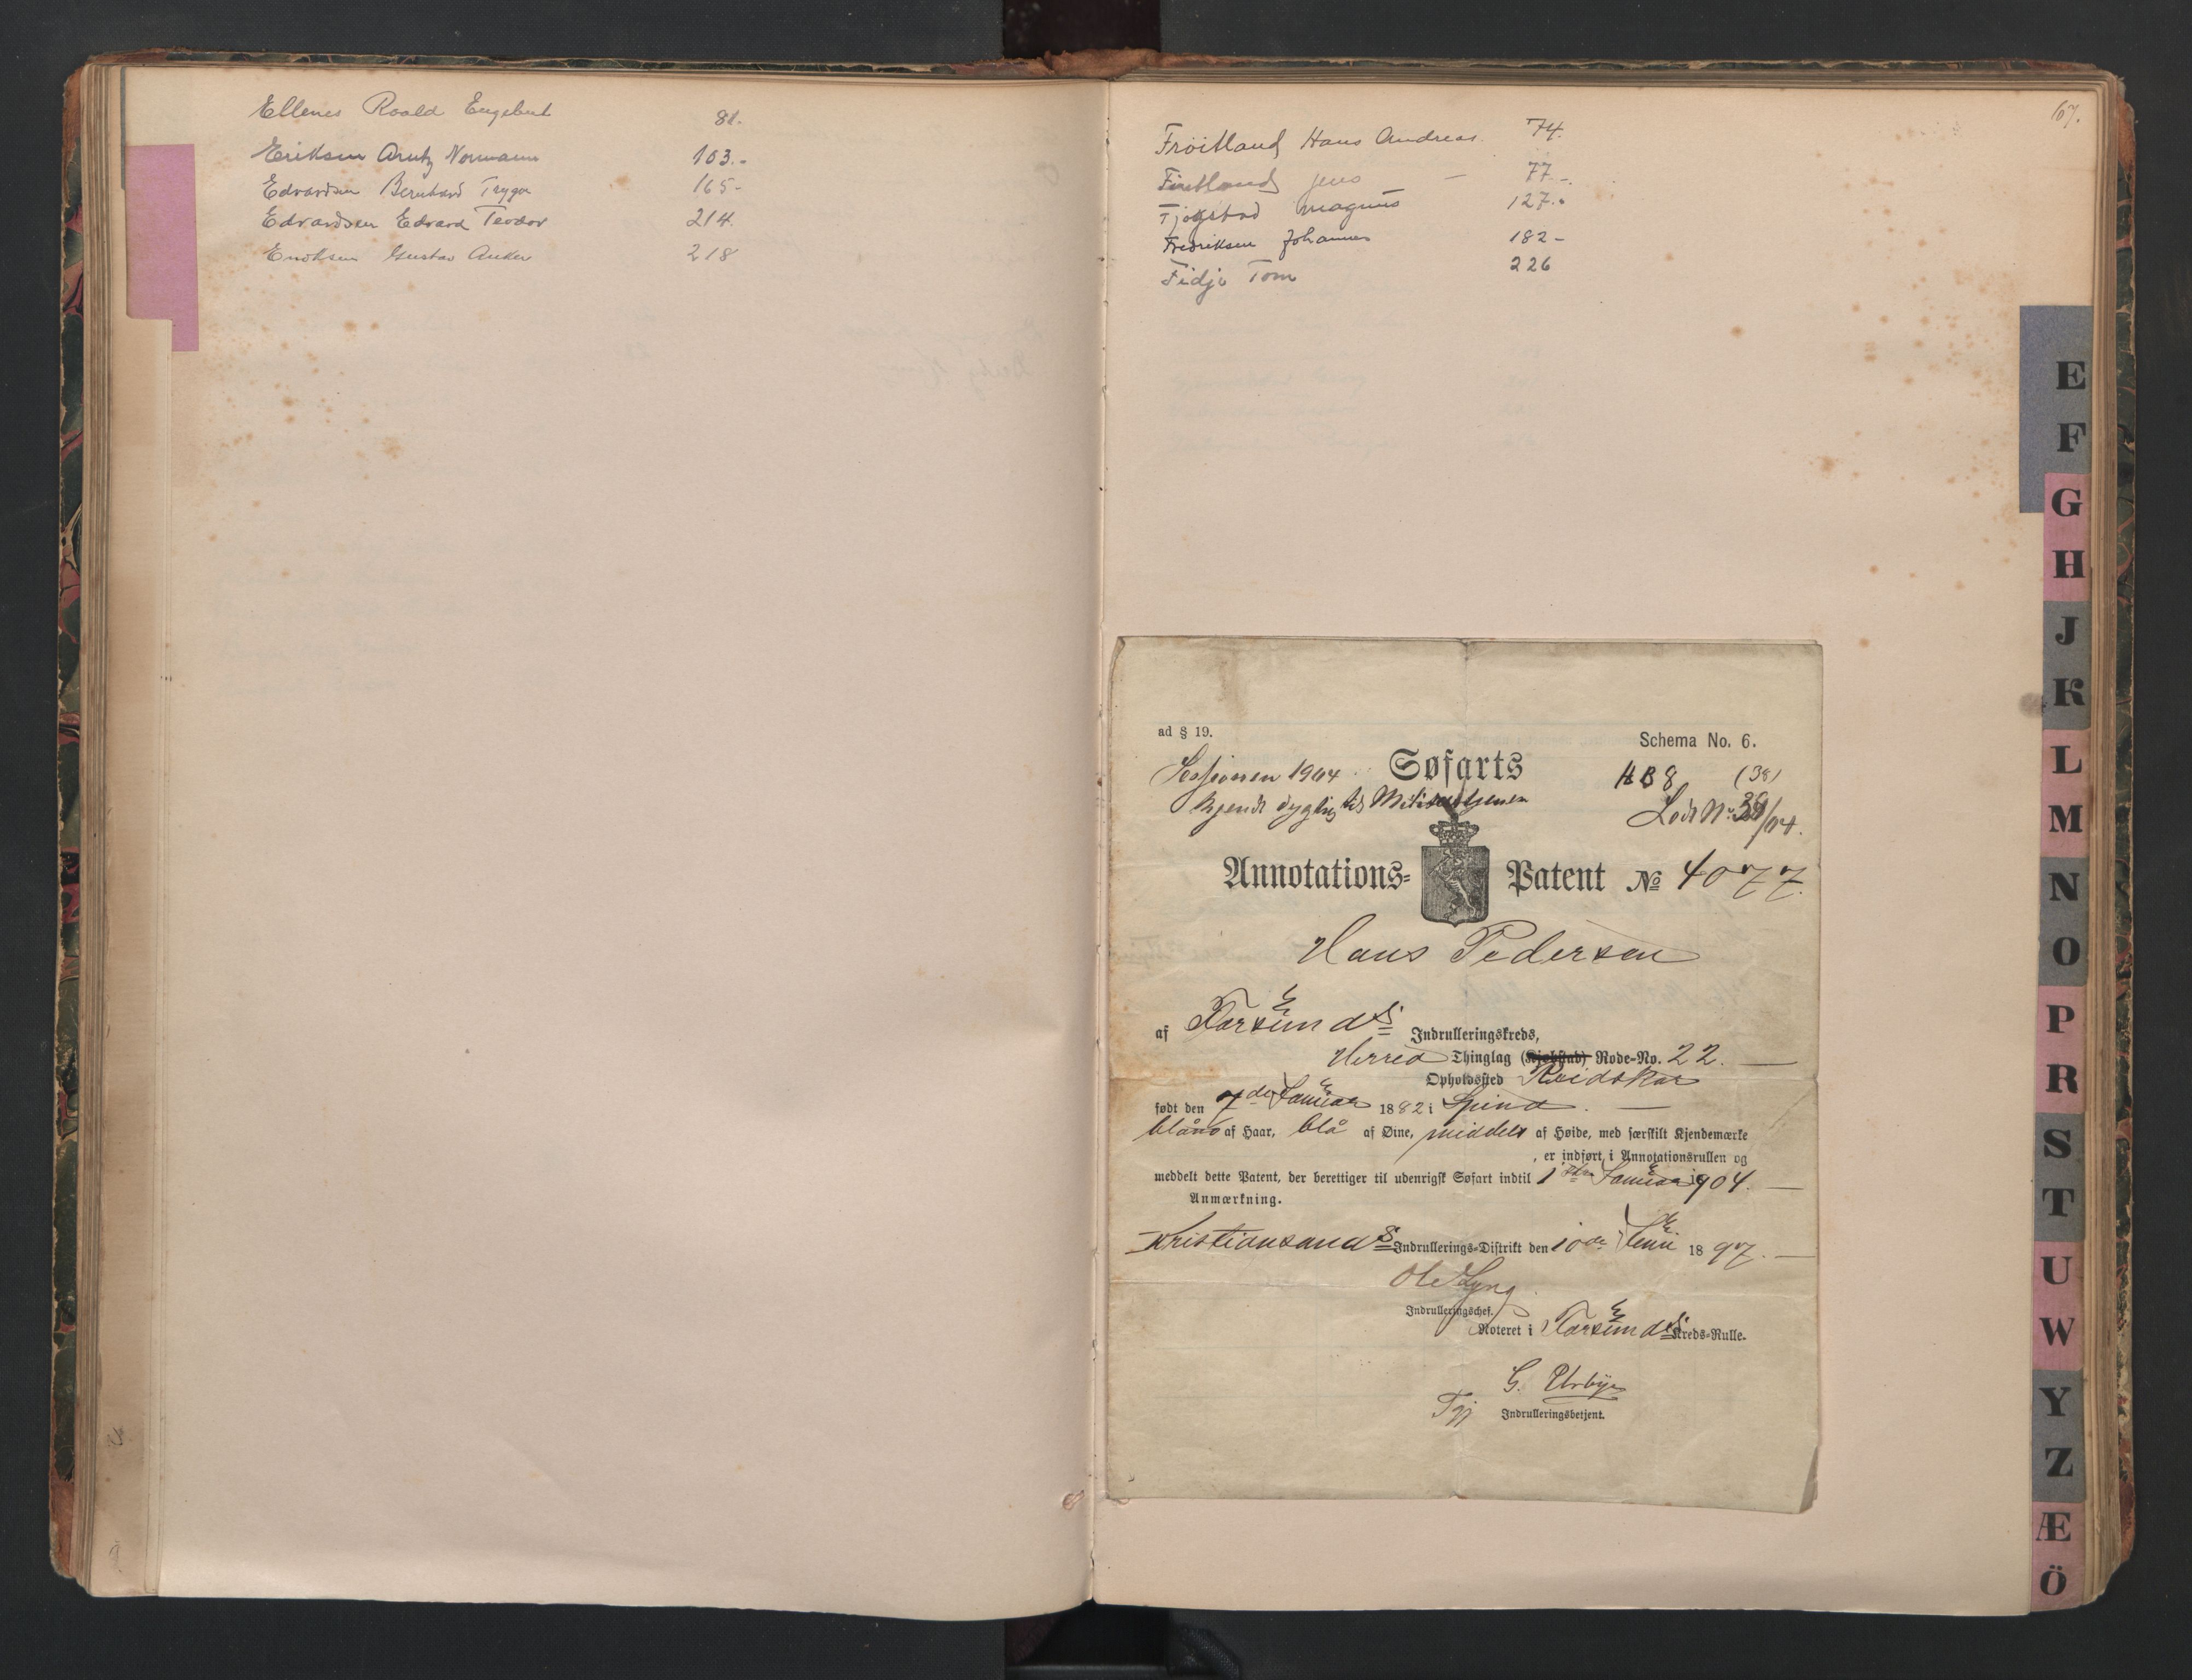 Ellenes Roald Engebret 81.
Eriksen Arntz Normann 103.-
Edvardsen Bernhard Trygve 165-
Edvardsen Edvard Teodor 214.
Enoksen Gustav Anker 218
67.
Fröitland Hans Andreas. 74.
Fintland Jens — 77-.
Fjogstad Magnus 127.-
Fredriksen Johannes 182-
Fidje Tom 226
E
F
G
H
J
K
L
M
N
O
P
R
S
T
U
W
Y
Z
Æ
Ö
ad § 19.
Schema No. 6.
Sessionen 1904 Søfarts HB8 (38)
kjendt dygtig til Militærtjenen Lod No 39/04.
Annotations= Patent No 4077.
Hans Pedersen
af Farsunds Indrulleringskreds,
Herred Thinglag (Kjøbstad) Rode-No. 22. —
Opholdssted Reidskar
født den 7de Januar 1882 i Spind. —
blond af Haar, blå af Øine, middels af Høide, med særskilt Kjendemærke
, er indført i Annotationsrullen og
meddelt dette Patent, der berettiger til udenrigsk Søfart indtil 1ste Januar 1904. —
Anmærkning.
Kristiansands Indrullerings-Distrikt den 10de Juni 1897. —
Ole Lyng.
Indrulleringschef.
Noteret i Farsunds Kreds-Rulle.
G. Urbye
Indrulleringsbetjent.